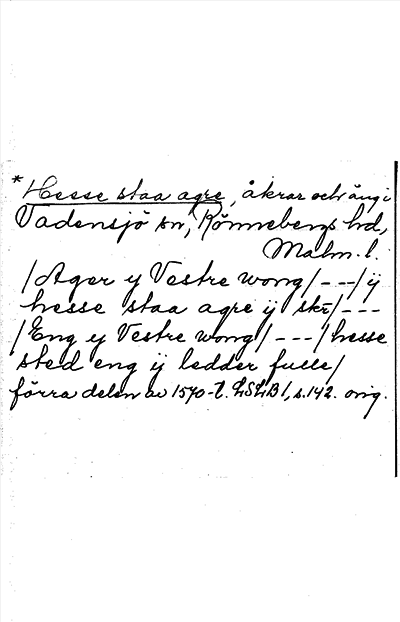 *Hesse staa agre, åkrar och äng i
Vadensjö sn, Rönnebergs hd,
Malm. l.
/Ager y Vestre wong/---/ÿ
hesse staa agre ÿ skr̄/---
/Eng y Vestre wong/---/hesse
sted eng ÿ ledder fulle/
förra delen av 1570-t. LSLB 1, s.142. orig.